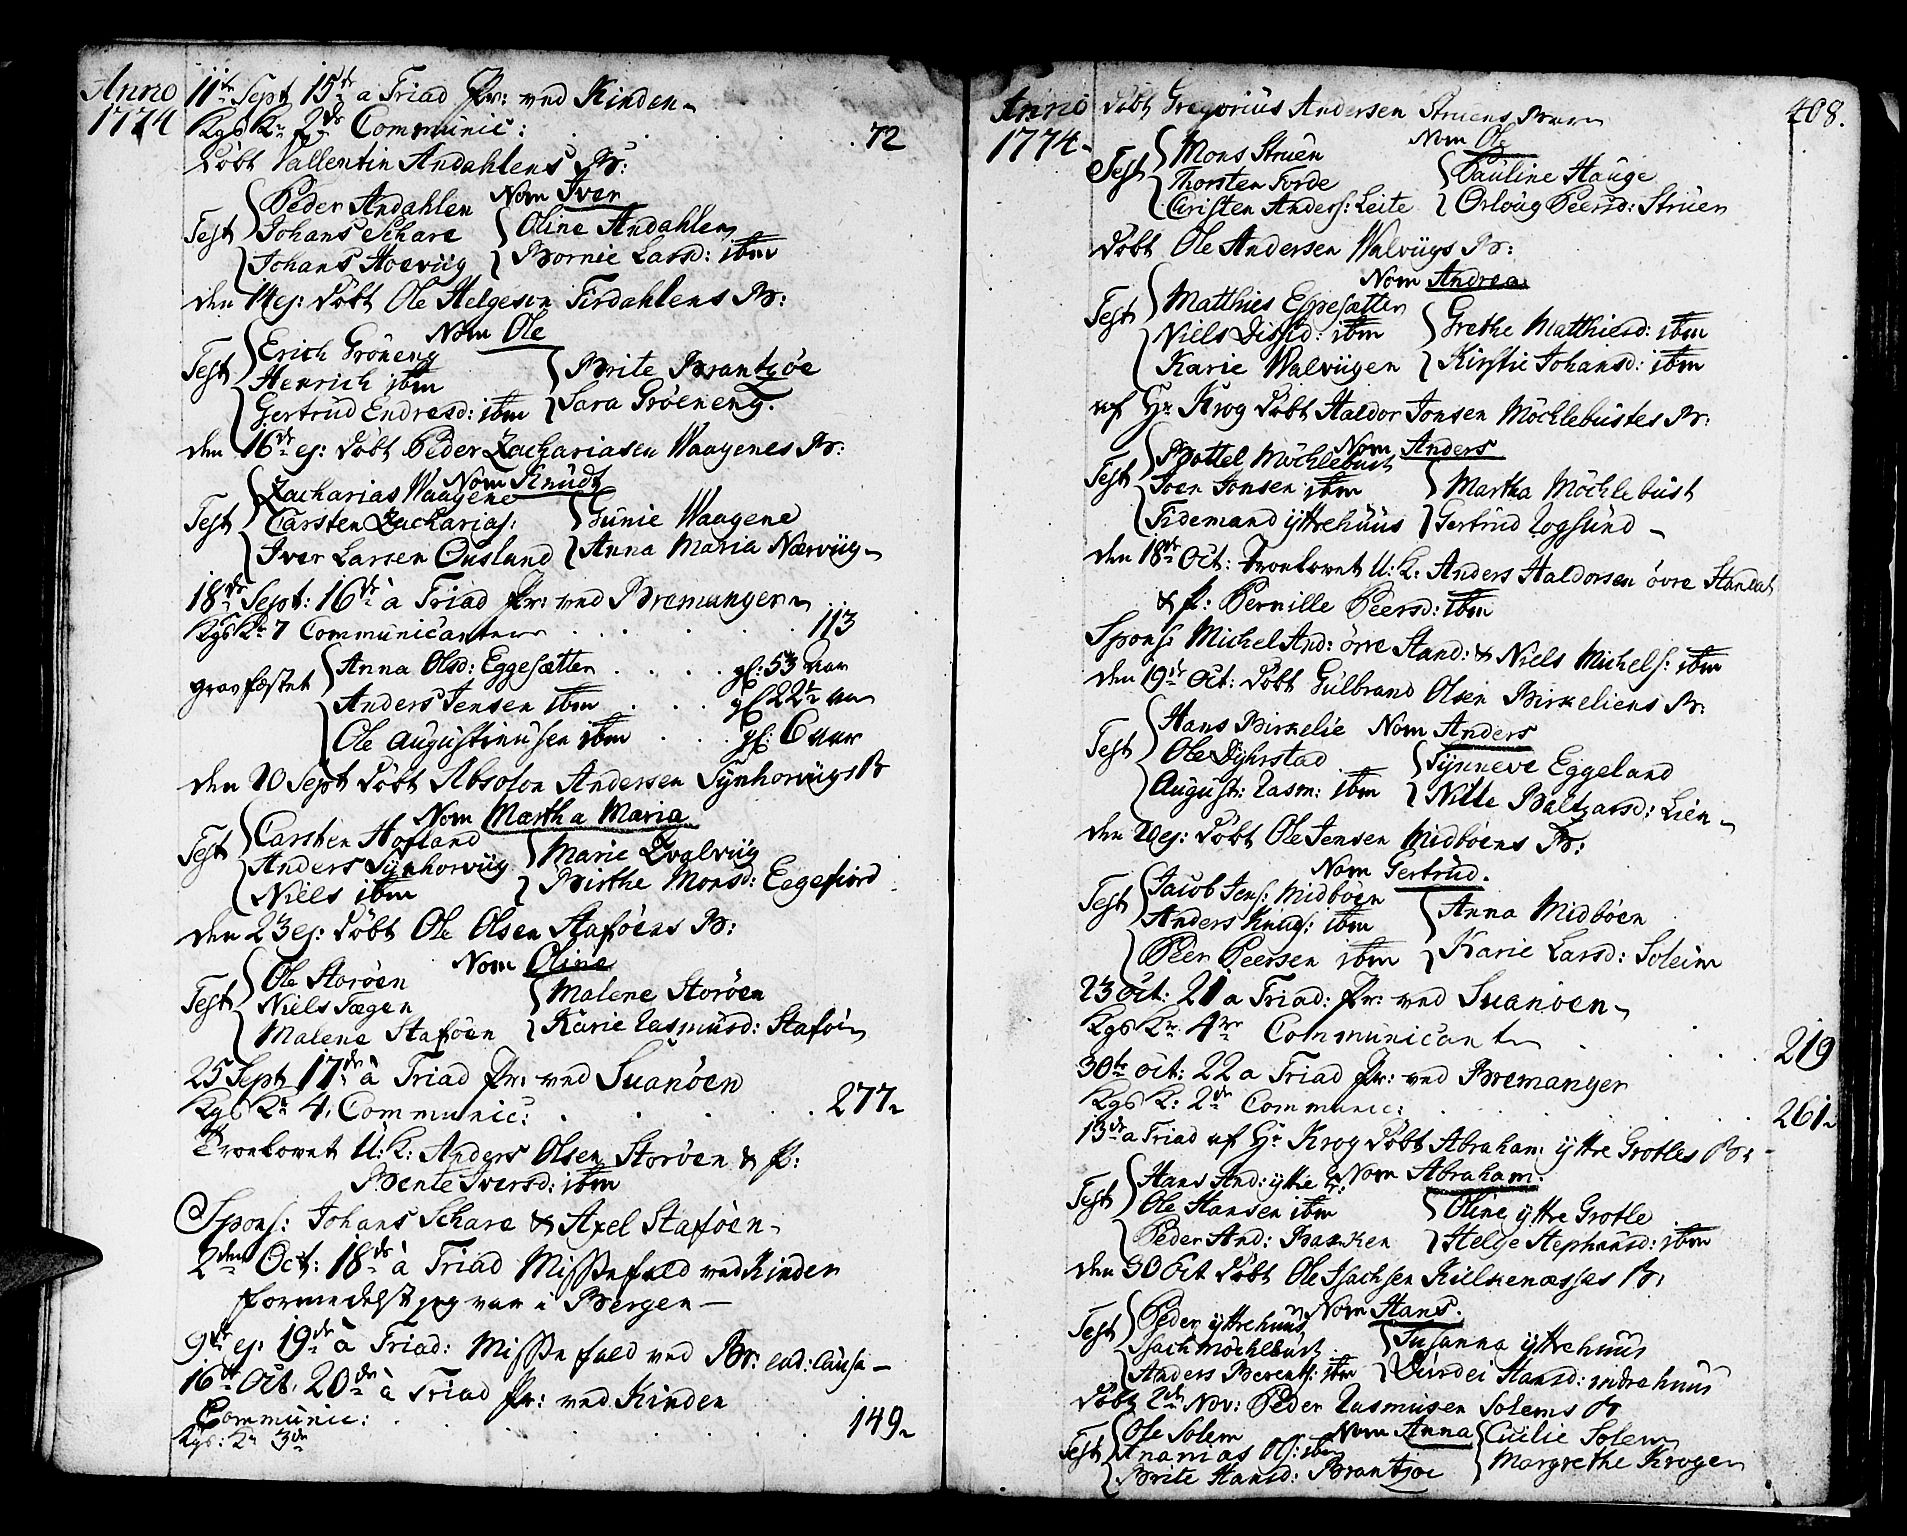 Anno 1774
11te Sept 15de a Triad Pr: ved Kinden
Kgs Kr 2de Communic: 72
Døbt Vallentin Andahlens Br:
Nom Iver
Test Peder Andahlen
Johans Schare
Johans Hoevüg
Oline Andahlen
Bornie Larsd: ibm
den 14 ej: Døbt Ole Helgesen Tirdahlens Br:
Nom Ole
Test Erich Grøneng
Henrich ibm
Gertrüd Endresd: ibm
Brite Brantzøe
Sara Grøeneng.
den 16de ej: Døbt Peder Zachariasen Waagenes Br:
Nom Knüdt
Test Zacharias Waagene
Carsten Zacharias:
Iver Larsen Ousland
Günie Waagene
Anna Maria Nærvüg
18de Sept: 16de à Triad Pr: ved Bremanger
Kgs Kr 7 Communicanter 113
gravfæstet Anna Olsd: Eggesætter gl: 53 aar
Anders Jensen ibm gl 22 1/2 aar
Ole Augustinusen ibm gl: 6 aar
den 20 Sept Døbt Absolon Andersen Synhorvügs Br
Nom Martha Maria
Test Carsten Hofland
Anders Synhorvüg
Niels ibm
Marie Qvalvüg
Birthe Monsd: Eegefiord
den 23 ej: Døbt Ole Olsen Staføens Br:
Nom Oline
Test Ole Storøen
Niels Fægen
Malene Staføen
Malene Storøen
Karie Rasmusd: Staføen
25 Sept 17de à Triad Pr: ved Suanøen
Kgs Kr 4. Communic: 277
Troelovet U: K: Anders Olsen Storøen & P:
Bente Iversd: ibm
Spons: Johans Schare & Axel Staføen
2den Oct: 18de à Triad Missefald ved Kinden
formedelst jeg var i Bergen
9de ej: 19de à Triad: Missefald ved Br: ead: causa
16de Oct. 20de à Triad Pr: ved Kinden
Communic: 149
Kgs: Kr 3de
408.
Anno 1774
Døbt Gregorius Andersen Struens Barn
Nom Ole
Test Mons Struen
Thorsten Forde
Christen Anders: Leite
Pauline Hauge
Orloüg Peersd: Strüen
Døbt Ole Andersen Walvügs Br:
Nom Andrea
Test Matthies Espesætter
Niels ibm
Karie Walvügen
Grethe Matthiesd: ibm
Kirstie Johansd: ibm
af Hr Krog Døbt Haldor Jonsen Möchlebustes Br:
Nom Anders
Test Bottel Möchlebust
Joen Jonsen ibm
Tidemand ÿttrehüüs
Martha Möchlebüst
Gertrüd Rogsünd
den 18de Oct: Troelovet U: K: Anders Haldorsen övre Standal
& P: Pernille Peersd: ibm
Spons: Michel And: övre Stand: & Niels Michels: ibm
den 19de Oct: Døbt Gülbrand Olsen Birkeliens Br:
Nom Anders
Test Hans Birkelie
Ole Dyhrstad
August: Rasm: ibm
Synneve Eggeland
Nille Baltzarsd: Lien
den 20 ej: Døbt Ole Jensen Midbøens Br:
Nom Gertrüd.
Test Jacob Jens: Midbøen
Anders Knuds: ibm
Peer Peersen ibm
Anna Midbøen
Karie Larsd: Soleim
23 Oct: 21 a Triad: Pr: ved Suanøen
Kgs Kr. 4re Communicanter 219
30te Oct: 22 a Triad Pr: ved Bremanger
Kgs K: 2de Communic: 261
13de a Triad af Hr Krog Døbt Abraham ÿttre Grotles Br:
Nom Abraham:
Test Hans And: ÿttre G:
Ole Hansen ibm
Peder And: Bakken
Oline ÿttre Grotle
Helge Stephensd: ibm
den 30 Oct Døbt Ole Isachsen Külkenæssas Br:
Nom Hans.
Test Peder ÿttrehüüs
Isach Möchlebust
Anders Berents: ibm
Susanna ÿttrehuus
Durdei Hansd: indrehuus
Døbt 2de Nov: Peder Rasmusen Solems Br
Nom Anna
Test Ole Solem
Ananias Ols: ibm
Brite Hansd: Brantzøe
Cicilie Solem
Margrethe Krogen